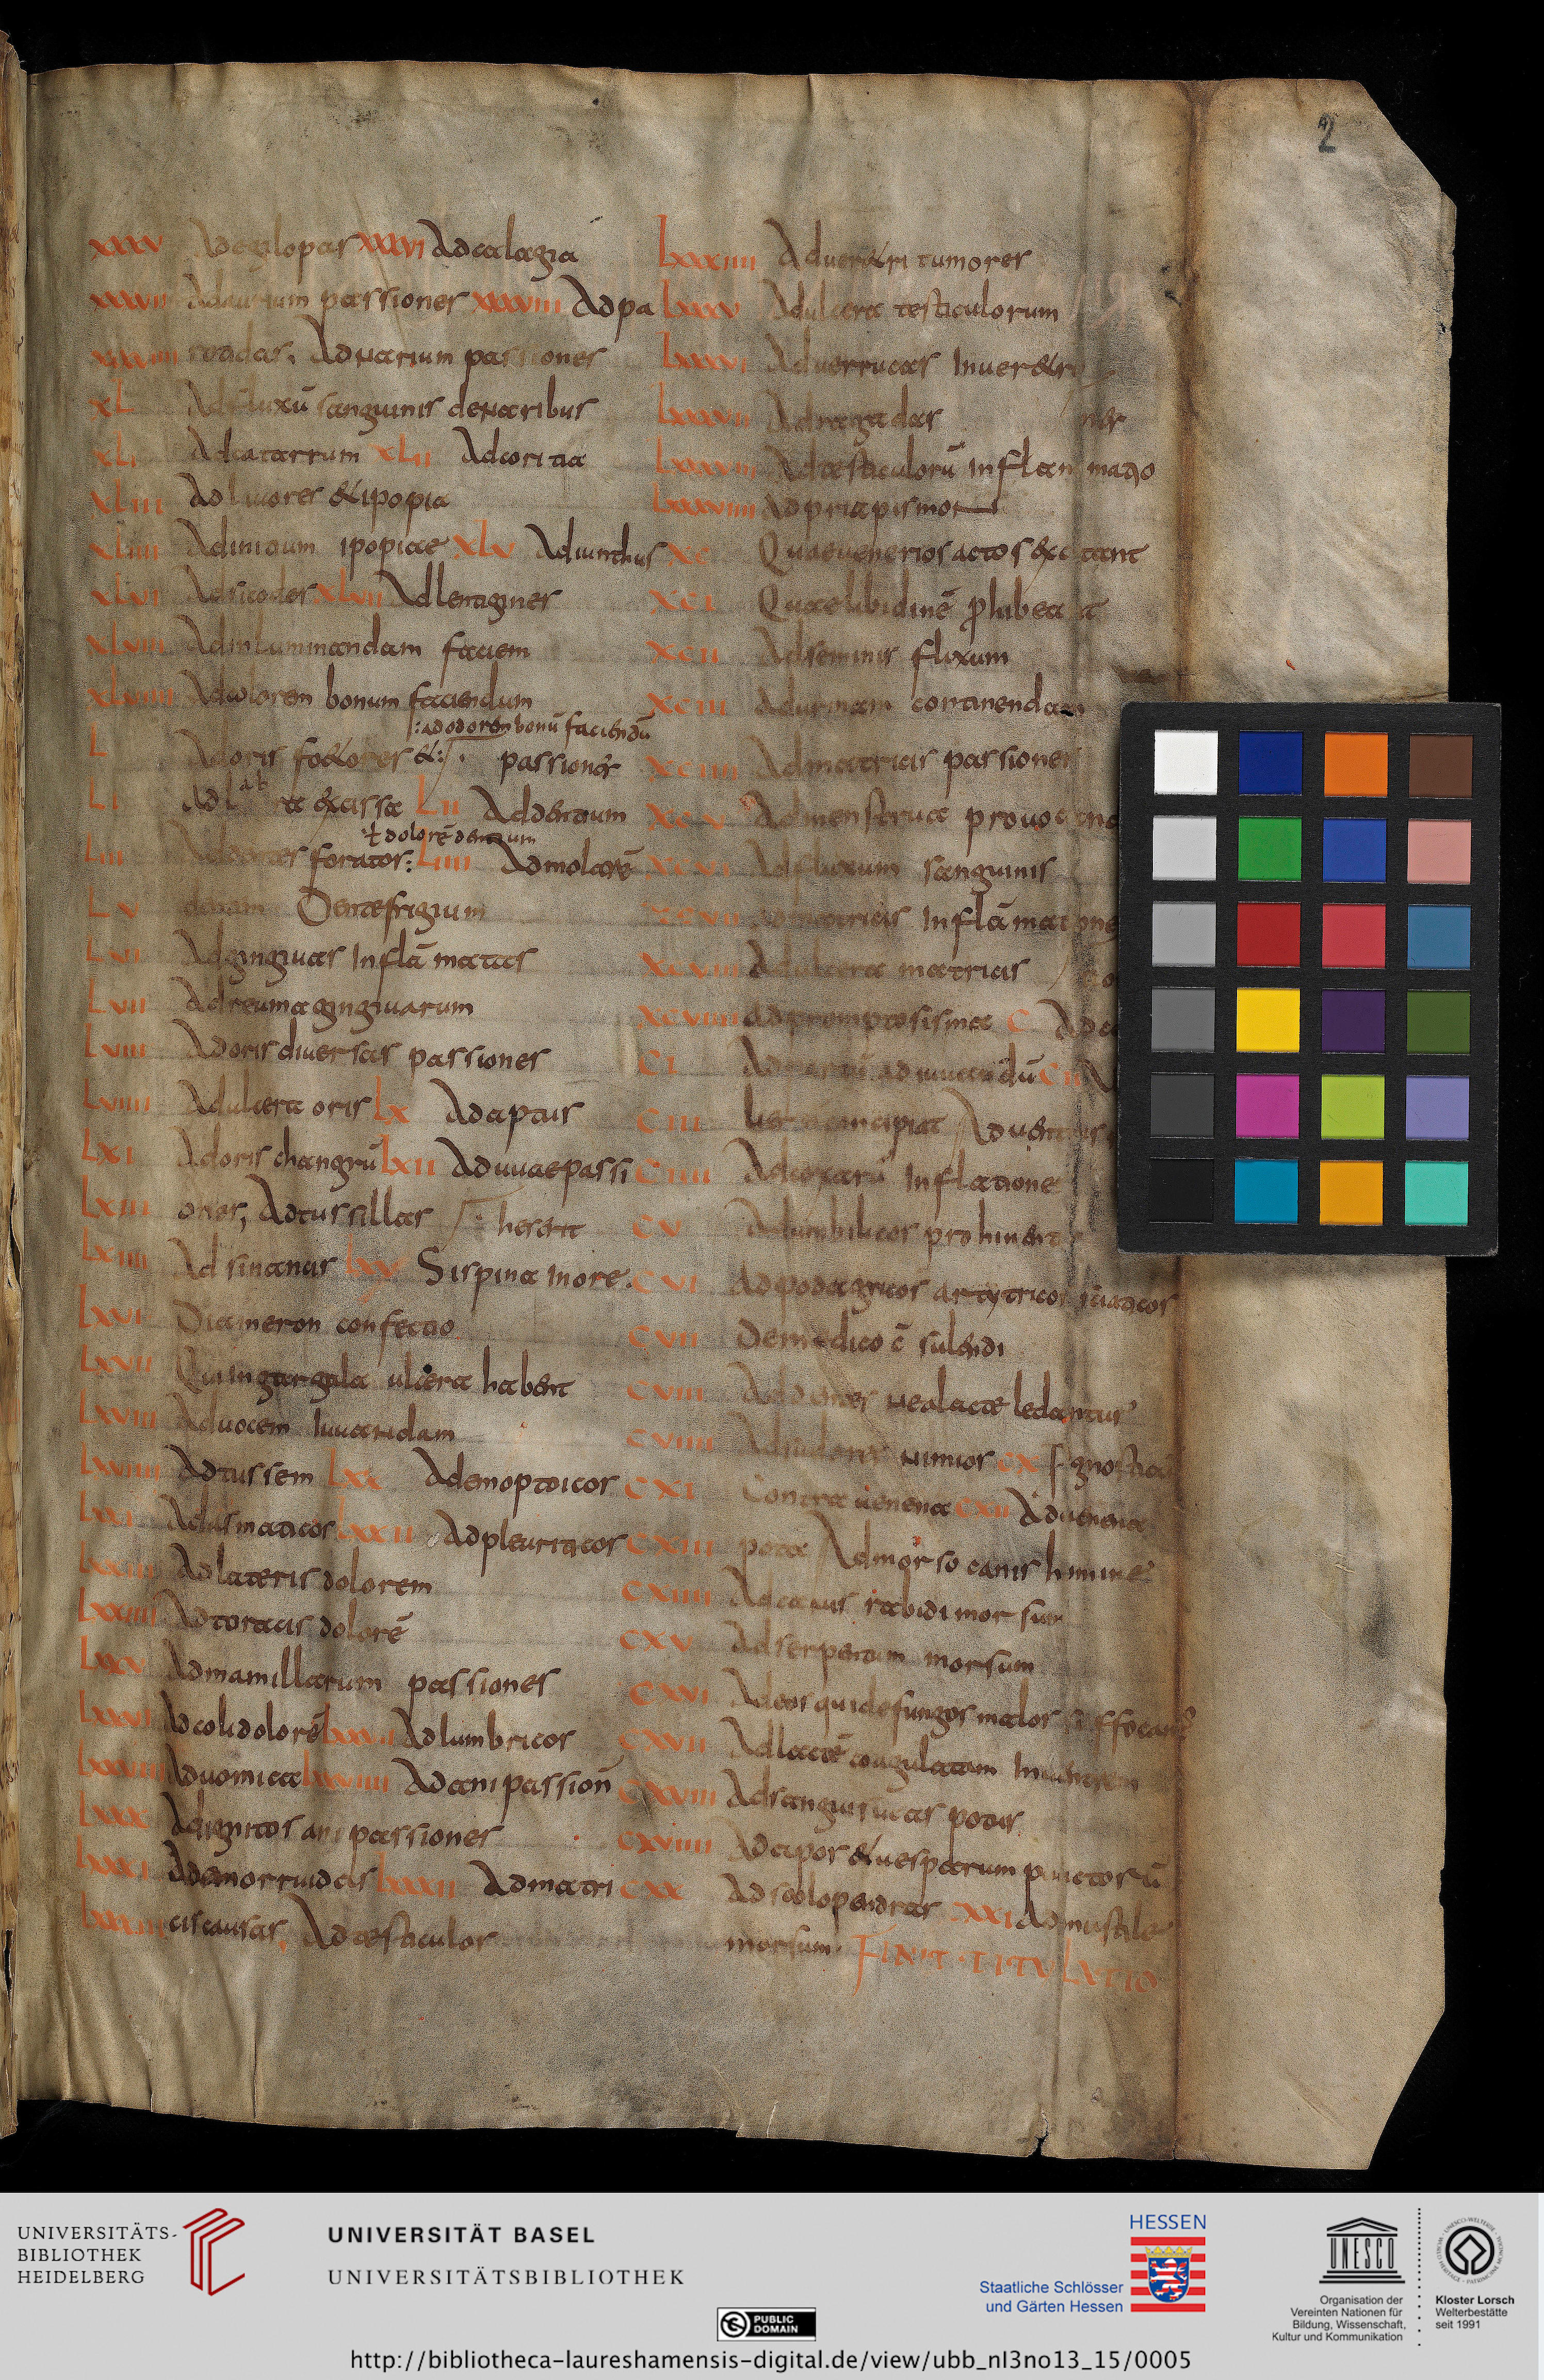 2
xxxv Ad egilopas xxxvi Ad calagia
xxxvii Ad aurium passiones xxxviii Ad pa
xxxviiii rotidas. Ad narium passiones
xL Ad fluxū sanguinis de naribus
xLi Ad catarrum xLii Ad coritia
xLiii Ad livores & ipopia
xLiiii ipopiae xLv
xLvi Ad sicodes xLvii Ad lentagines
xLviii faciem
xLviiii Ad colorem bonum faciendum
ad odorem bonū faciendū
L Ad oris foetores &: passiones
Li Ad labra excissa Lii Ad dentium
dolorē dentium
Liii forator: Liiii Ad molarē
Lv Dentefrigium
Lvi Ad gingivas inflāmatas
Lvii Ad reuma gingivarum
Lviii Ad oris diversas passiones
Lviiii Ad ulcera oris Lx Ad aptas
Lxi Ad oris changrū Lxii Ad uvae passi
Lxiii ones, Ad tussillas heserit
Lxiiii Ad sinancis Lxv Si spina in ore
Lxvi Diameron confectio
Lxvii Qui in gargala ulcera habent
Lxviii Ad vocem iuvandam
Lxviiii Ad tussem Lxx Ad emoptoicos
Lxxi Ad asmaticos Lxxii Ad pleuriticos
Lxxiii Ad lateris dolorem
Lxxiiii Ad toracis dolorē
Lxxv Ad mamillarum passiones
Lxxvi Ad coli dolorē Lxxvii Ad lumbricos
Lxxviii Ad vomica Lxxviiii Ad ani passion
Lxxx ani passiones
Lxxxi Ad emorruidas Lxxxii Ad matri
Lxxxiii cis causas. Ad testiculor
Lxxxiiii Ad ver&ri tumores
Lxxxv Ad ulcera testiculorum
Lxxxvi Ad verrucas in ver&ri
Lxxxvii Ad ragadas
Lxxxviii Ad testiculorū inflammatio
Lxxxviiii Ad priapismon
xc Quae venerios actos excitant
xci Quae libidinē phibeat
xcii Ad seminis fluxum
xciii Ad urinam continendam
xciiii Ad matricis passiones
xcv Ad menstrua provocan
xcvi Ad fluxum sanguinis
xcvii Ad matricis inflāmatione
xcviii Ad ulcera matricis
xcviiii Ad promptosisma c Ad
ci Ad partū adiuvandū cii
ciii concipiat Ad ventris
ciiii inflatione
cv Ad umbilicos prominent
cvi Ad podagricos artyticos
cvii De medico
cviii Ad dentes ne lacte ledantur
cviiii nimios cx
cxi Contra venena cxii Ad venena
cxiii pota Ad morso canis
cxiiii Ad canis rabidi morsum
cxv Ad serpentum morsum
cxvi Ad eos qui de fungos malos suffocant
cxvii Ad lactē coagulatum in ventrem
cxviii Ad sanguisugas potas
cxviiii Ad apos & vesparum punctos ū
cxx Ad scolopendras cxxi Ad mustale
morsum. FINIT·TITULATIO
UNIVERSITÄTS-
BIBLIOTHEK
HEIDELBERG
UNIVERSITÄT BASEL
UNIVERSITÄTSBIBLIOTHEK
PUBLIC
DOMAIN
HESSEN
Staatliche Schlösser
und Gärten Hessen
UNESCO
Organisation der
Vereinten Nationen für
Bildung, Wissenschaft,
Kultur und Kommunikation
Kloster Lorsch
Welterbestätte
seit 1991
http://bibliotheca-laureshamensis-digital.de/view/ubb_nI3no13_15/0005